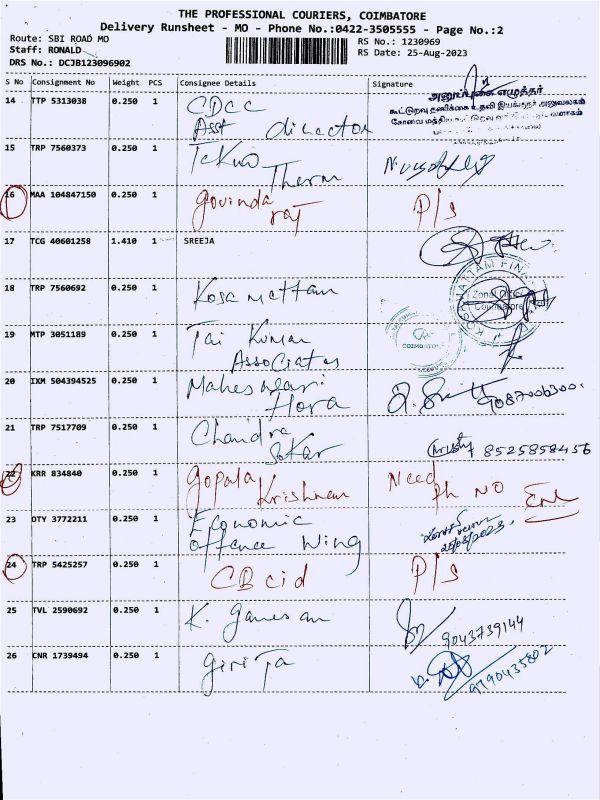 THE PROFESSIONAL COURIERS, COIMBATORE
Delivery Runsheet - MO - Phone No.:0422-3505555 - Page No.:2
Route: SBI ROAD MO
RS No.: 1230969
Staff: RONALD
RS Date: 25-Aug-2023
DRS No.: DCJB123096902
S No Consignment No Weight PCS Consignee Details Signature
அனுப்புகை எழுத்தர்
கூட்டுறவு தணிக்கை உதவி இயக்குநர் அலுவலகம்
14 TTP 5313038 0.250 1 CDCC
Asst director
15 TRP 7560373 0.250 1 Tekno
Therm
16 MAA 104847150 0.250 1 Govinda P/s
raj
17 TCG 40601258 1.410 1 SREEJA
18 TRP 7560692 0.250 1 Kosamattam
KOSAMATTAM FINA
Zonal Office
Coimbatore
19 MTP 3051189 0.250 1 Jai Kumar
Associates
COIMBATORE
20 IXM 504394525 0.250 1 Maheswari
Hora
9087006300
21 TRP 7517709 0.250 1 Chandra
Sekar
Christy 8525858456
22 KRR 834840 0.250 1 Gopala Need
Krishnan Ph NO
23 OTY 3772211 0.250 1 Economic
offence Wing
25/08/2023
24 TRP 5425257 0.250 1 CBcid P/s
25 TVL 2590692 0.250 1 K. Ganesan
9043739144
26 CNR 1739494 0.250 1 Girija
9790435802